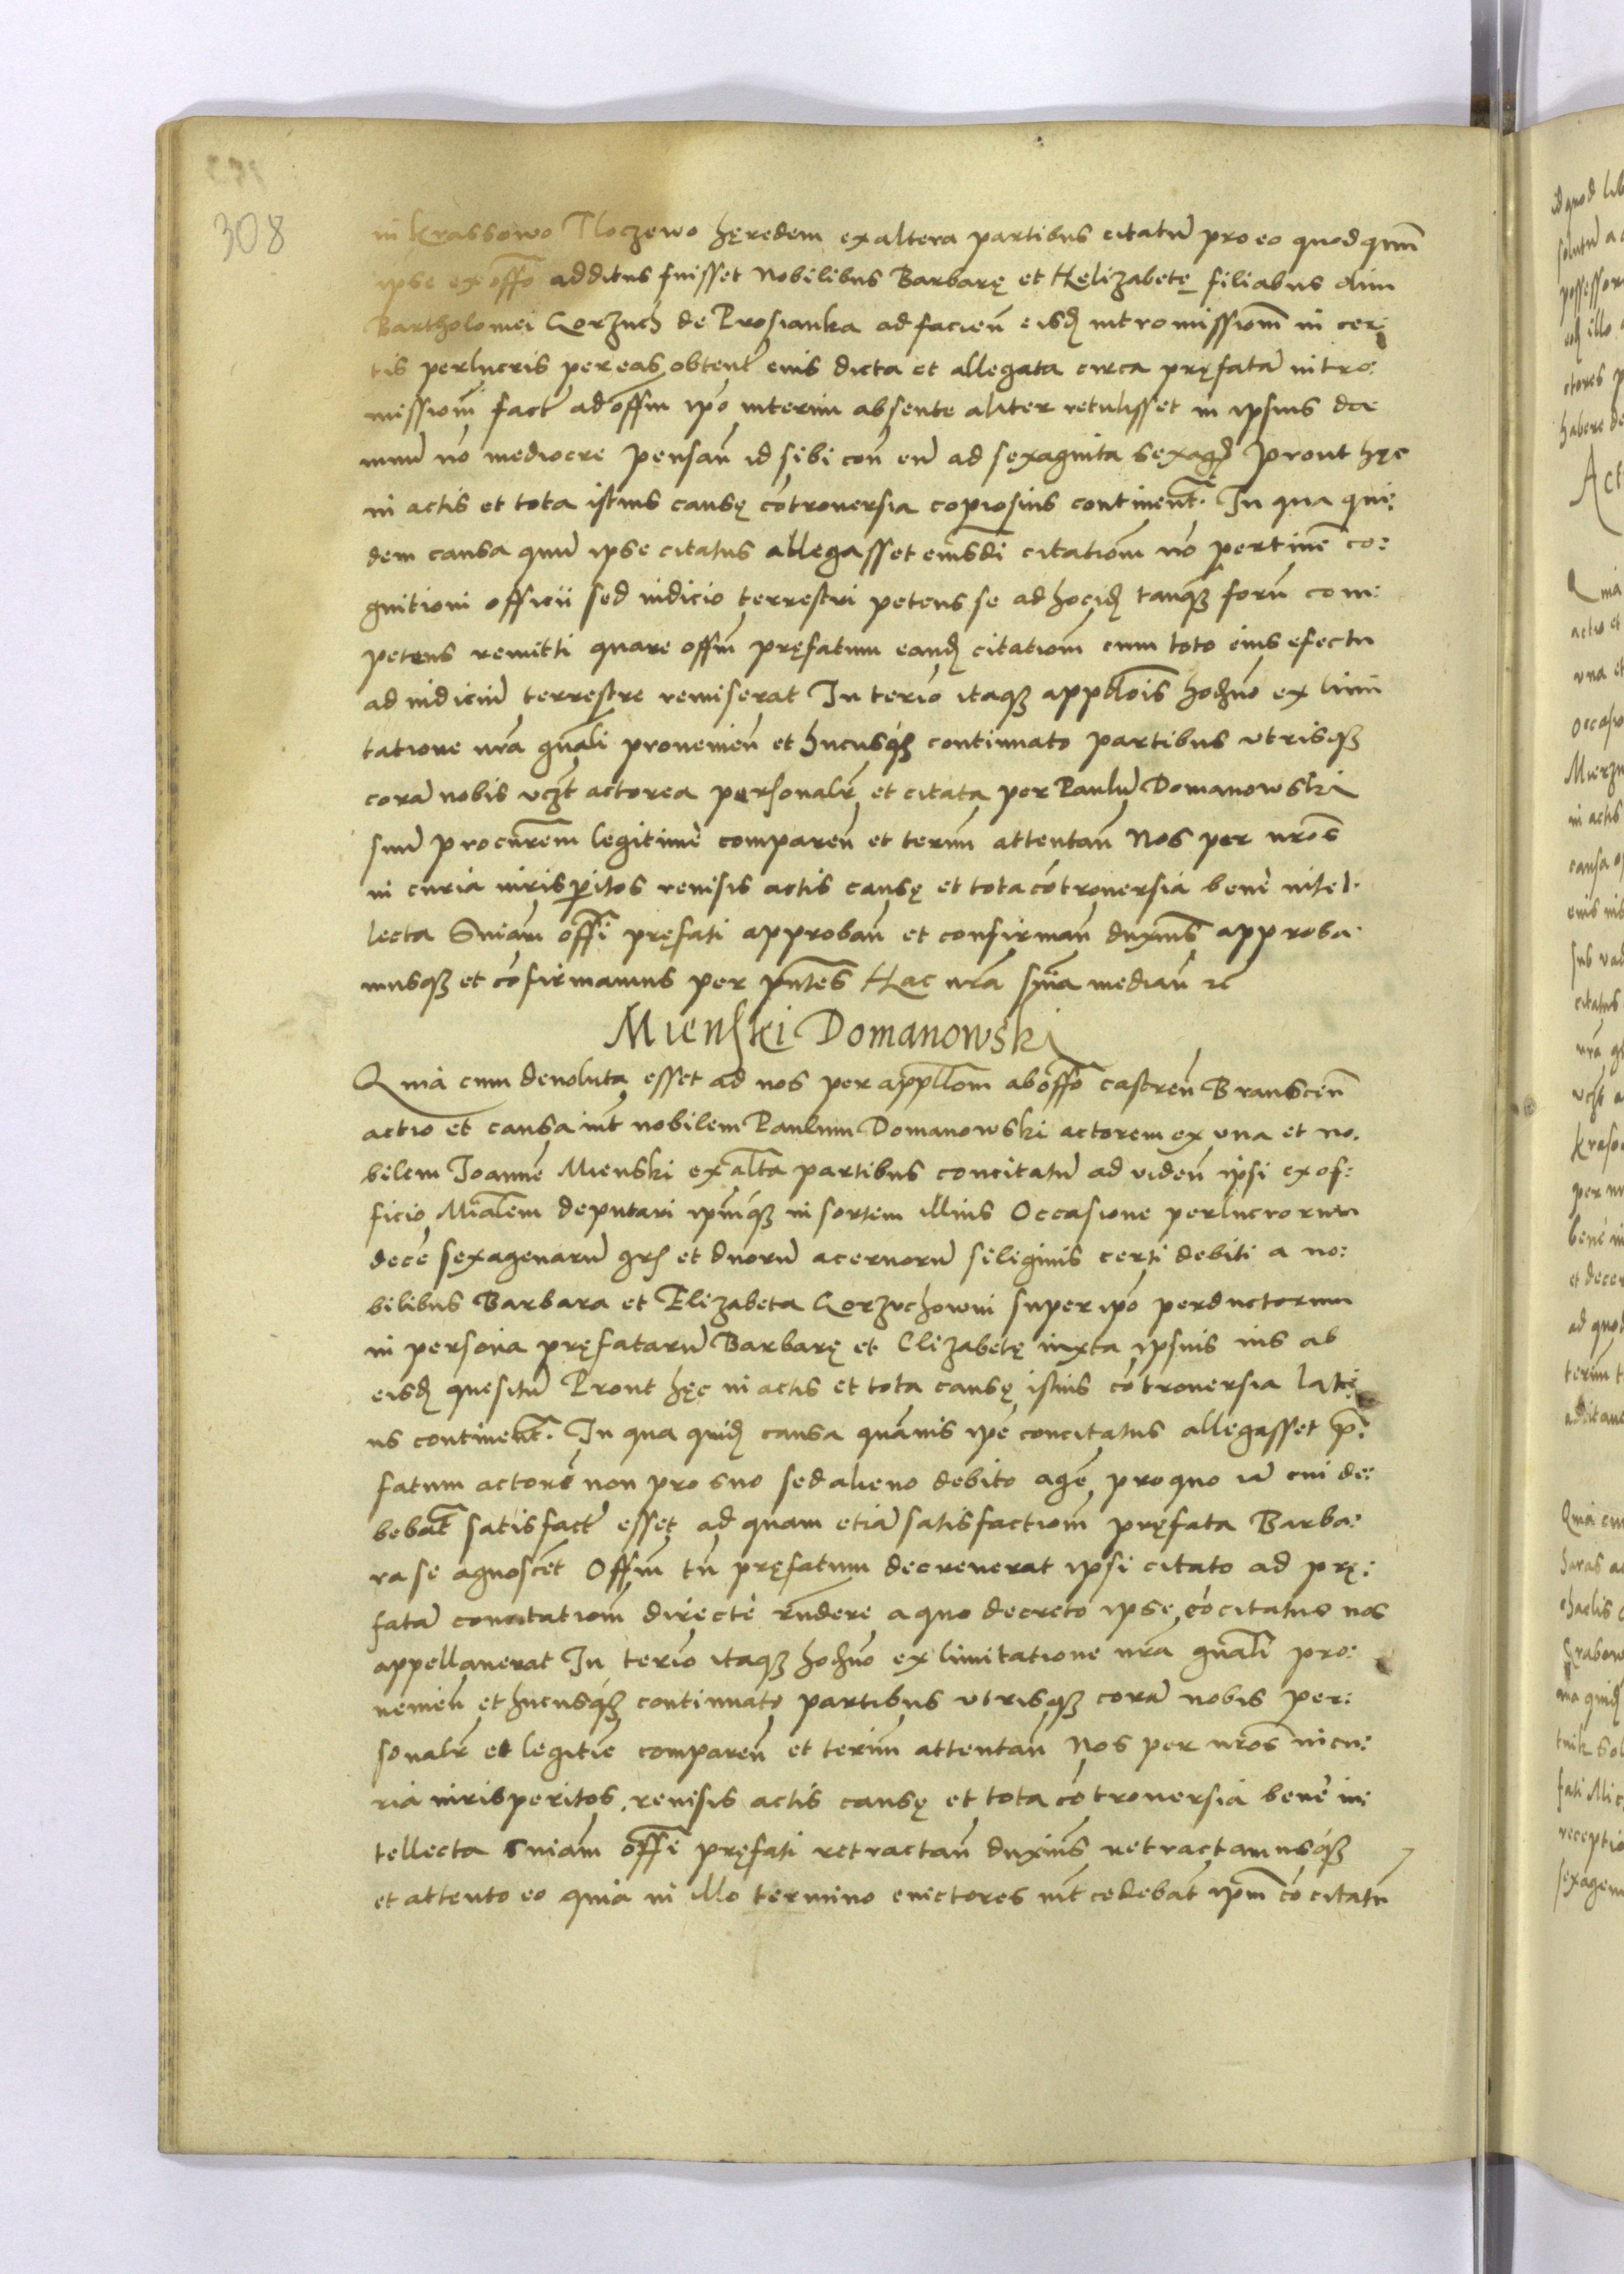 308
in Krassowo Tloczewo hęredem ex altera partibus citatū pro eo quod qum̄
ipse ex offō additus fuisset Nobilibus Barbarę et Helizabetę filiabus olim
Bartholomei Gorzuch de Prosianka ad facien̄ eisdꝫ intromissionē in cer:
tis perlucris per eas obtent̄ eius dicta et allegata circa pręfatā intro:
missionē fact̄ ad offm̄ ipō interim absente aliter retulisset in ipsius da
mnū nō mediocre Pensan̄ id sibi con en̄ ad sexaginta sexagꝫ prout hęc
in actis et tota istius causę cōtrouersia copiosius continent̄. In qua qui:
dem causa quū ipse citatus allegasset eiusdī citationē nō pertinē co:
gnitioni officii sed iudicio terrestri petens se ad hocidꝫ tanqꝫ forū com:
petens remitti quare offm̄ pręfatum eandꝫ citationē cum toto eius efectu
ad iudiciū terrestre remiserat In teriō itaqꝫ appłlois hodꝫno ex limi
tatione nr̄a gn̄ali prouenien̄ et hucusqꝫ continuato partibus vtrisqꝫ
corā nobis vczt actorea personalr̄ et citata per Paulū Domanowski
suū procur̄em legitimè comparen̄ et term̄ attentan̄ Nos per nr̄os
in curia iurisperitos reuisis actis causę et tota cōtrouersia benè intel:
lecta Sn̄iam offī pręfati approban̄ et confirman̄ duxim9 approba
musqꝫ et cōfirmamus per pn̄tes Hac nr̄a sn̄ia median̄ rc
Mienski Domanowski
Quia cum deuoluta esset ad nos per appłlom ab offō castren̄ Branscen̄
actio et causa int̄ nobilem Paulum Domanowski actorem ex vna et no:
bilem Joannē Mienski ex alt̄a partibus concitatū ad viden̄ ipsi ex of:
ficio Mīałem deputari ipm̄qꝫ in sortem illius Occasione perlucrorum
decē sexagenarū grꝭ et duorū aceruorū seliginis certi debiti a no:
bilibus Barbara et Elizabeta Gorzuchowni super ipō perductorum
in persona pręfatarū Barbarę et Elizabetę iuxta ipsius ius ab
eisdꝫ quesitū Prout hęc in actis et tota causę istius cōtrouersia lati:
us continent̄. In qua quidꝫ causa quāuis ipē concitatus allegasset p̄:
fatum actorē non pro suo sed alieno debito agē pro quo iā cui de:
bebat̄ satisfact̄ esset ad quam etiā satisfactionē pręfata Barba:
ra se agnoscēt Offm̄ tn̄ pręfatum decreuerat ipsi citato ad prę:
fatā concitationē directè rn̄dere a quo decreto ipse cōcitatus nos
appellauerat In teriō itaqꝫ hodꝫno ex limitatione nr̄a gn̄ali pro:
uenien̄ et hucusqꝫ continuato partibus vtrisqꝫ corā nobis per:
sonalr̄ et legitīe comparen̄ et terīm attentan̄ Nos per nr̄os in cu:
ria iurisperitos reuisis actis causę et tota cōtrouersia benè in:
tellecta Sn̄iam offī pręfati retractan̄ duxim9 retractamusqꝫ
et attento eo quia in illo termino euictores int̄cedebāt ipm̄ cōcitatū